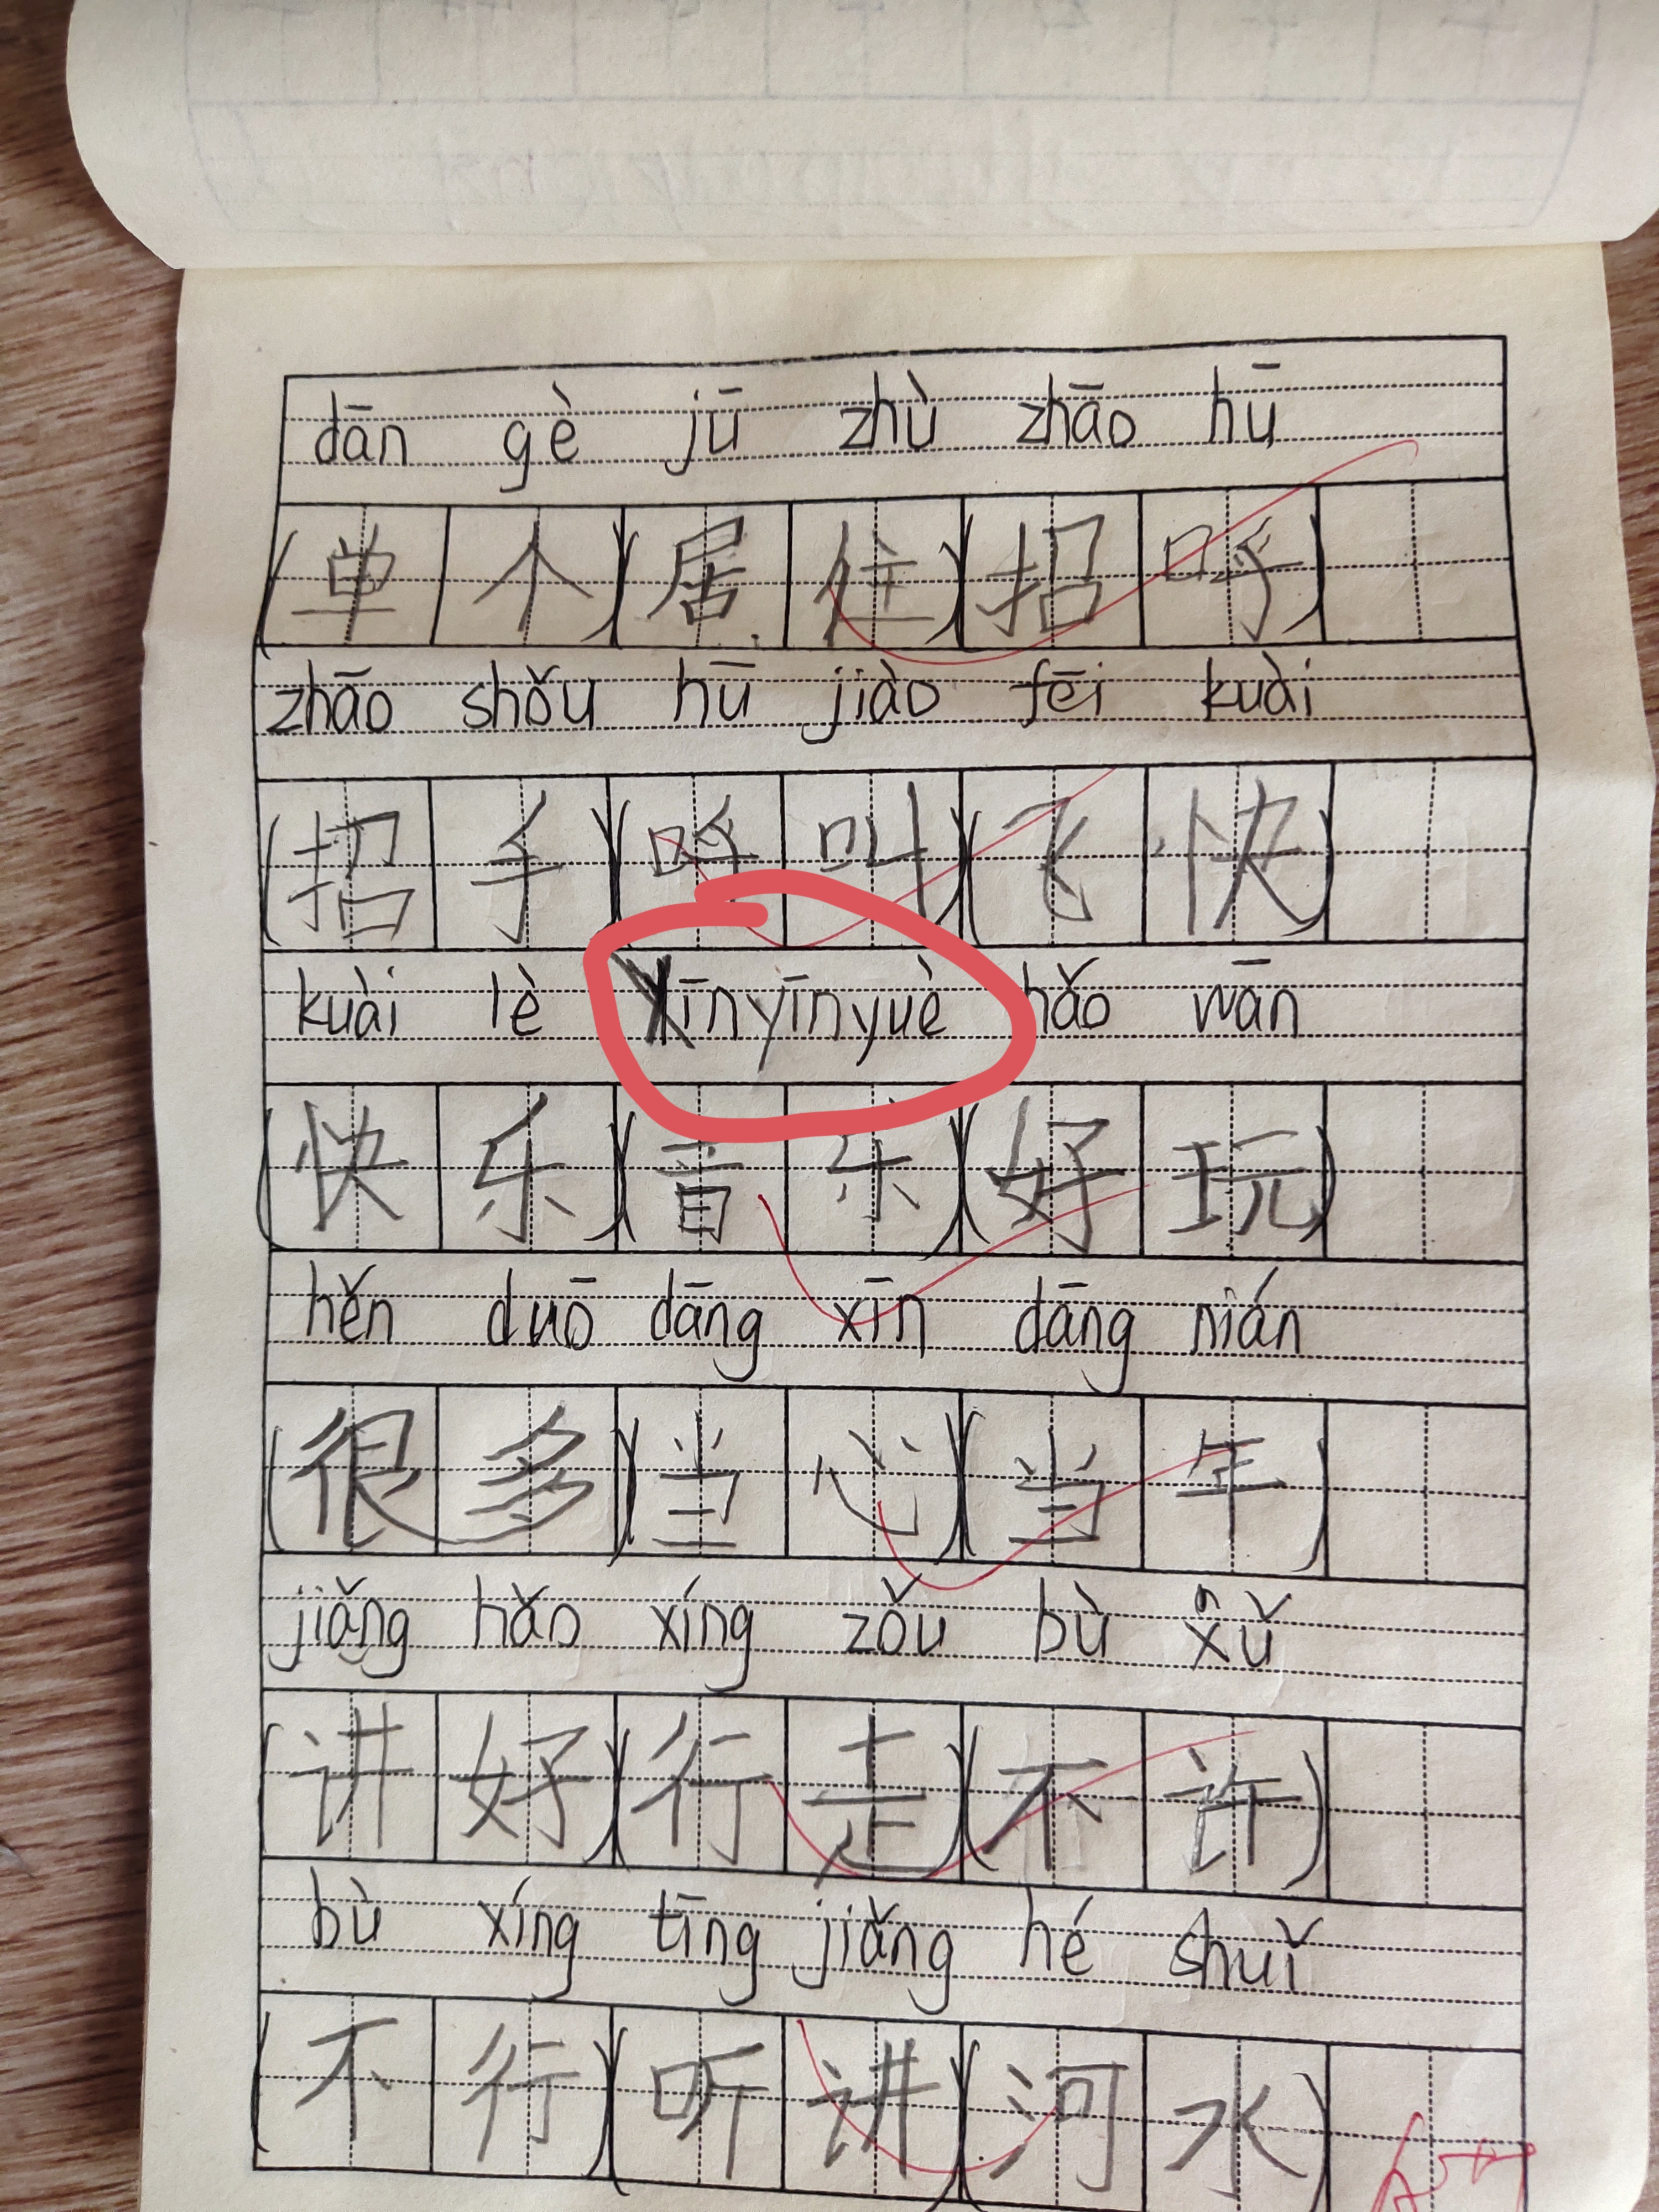 dān gè jū zhù zhāo hū
(单个)(居住)(招呼)
zhāo shǒu hū jiào fēi kuài
(招手)(呼叫)(飞快)
kuài lè yīnyuè hǎo wān
(快乐)(音乐)(好玩)
hěn duō dāng xīn dāng nián
(很多)(当心)(当年)
jiǎng hǎo xíng zǒu bù xǔ
(讲好)(行走)(不许)
bù xíng tīng jiǎng hé shuǐ
(不行)(听讲)(河水)